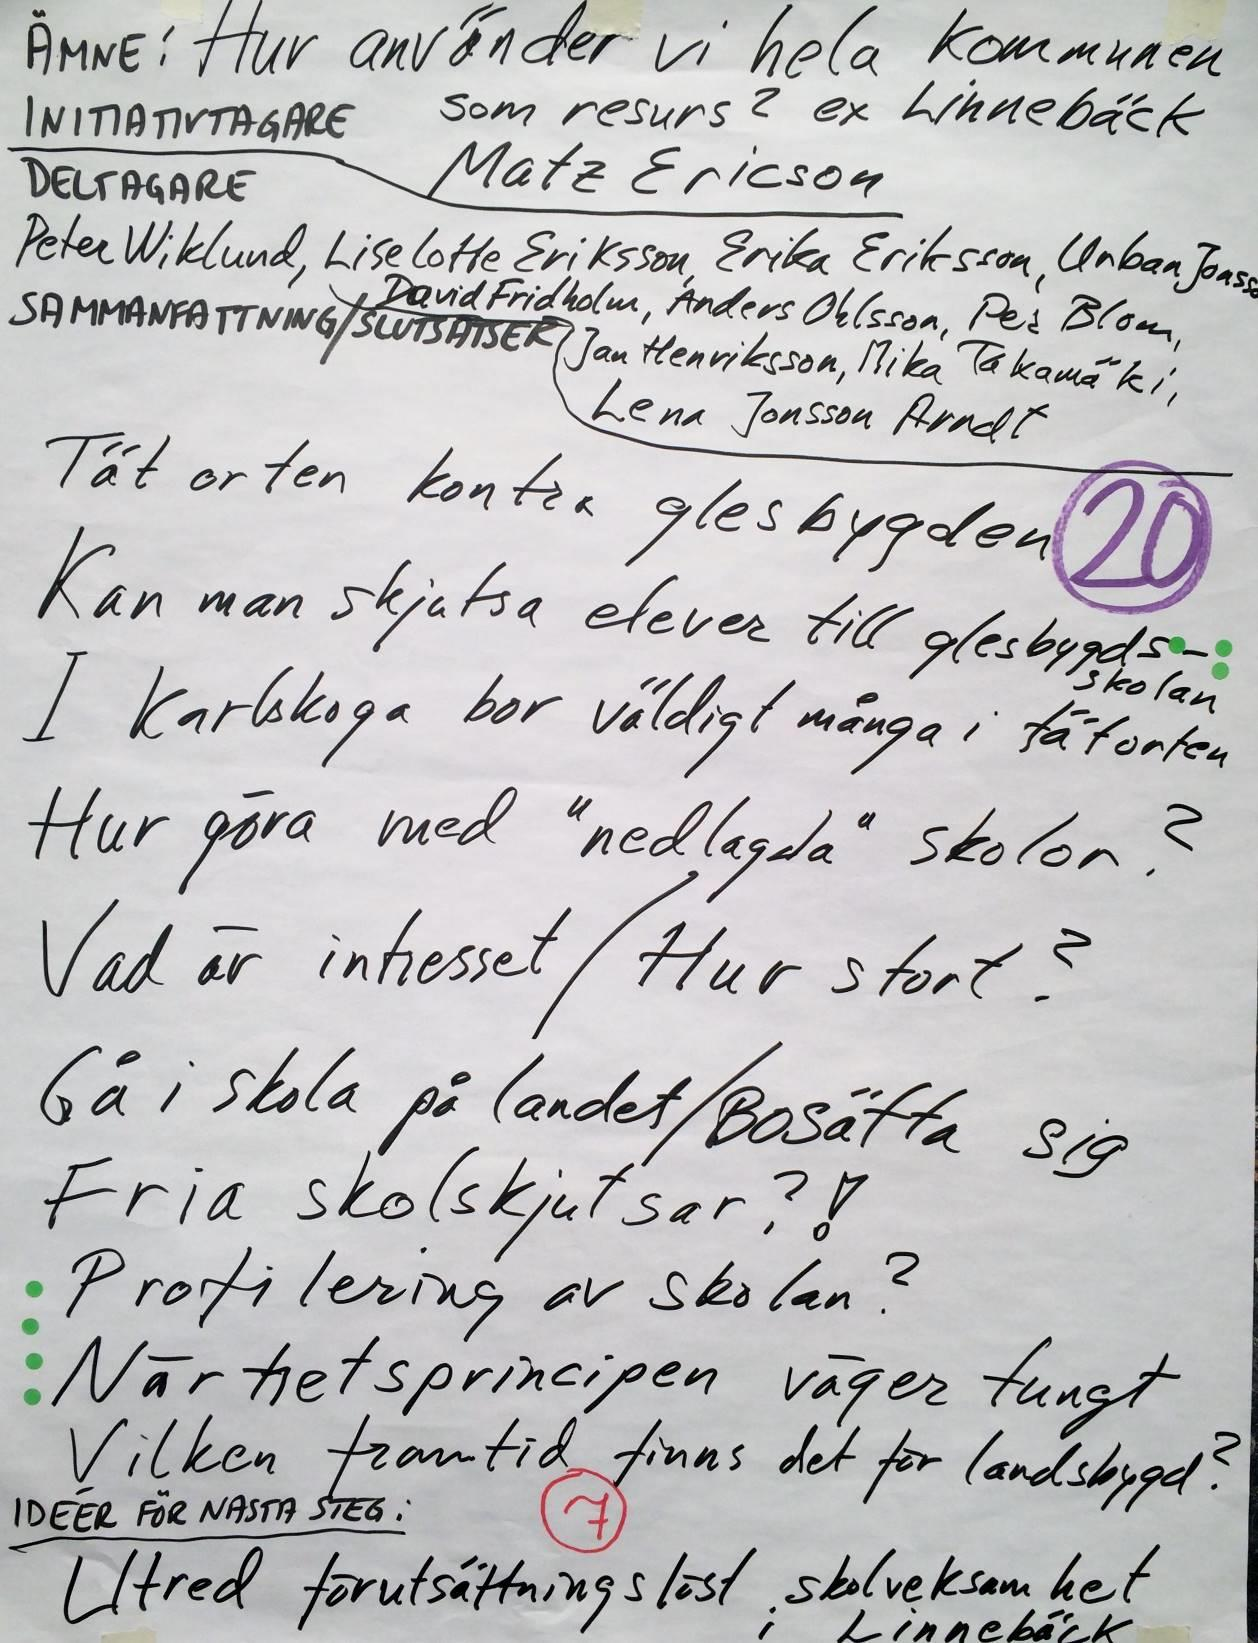 ÄMNE: Hur använder vi hela kommunen
som resurs? ex Linnebäck
INITIATIVTAGARE
Matz Ericson
DELTAGARE
Peter Wiklund, Liselotte Eriksson, Erika Eriksson, Urban Jonsso
David Fridholm, Anders Ohlsson, Per Blom,
SAMMANFATTNING/SLUTSATSER
Jan Henriksson, Mika Takamäki,
Lena Jonsson Arndt
Tätorten kontra glesbygden
20
Kan man skjutsa elever till glesbygds-
skolan
I Karlskoga bor väldigt många i tätorten
Hur göra med "nedlagda" skolor?
Vad är intresset/Hur stort?
Gå i skola på landet/Bosätta sig
Fria skolskjutsar?!
Profilering av skolan?
Närhetsprincipen väger tungt
Vilken framtid finns det för landsbygd?
IDÉER FÖR NÄSTA STEG:
7
Utred förutsättningslöst skolveksamhet
i Linnebäck